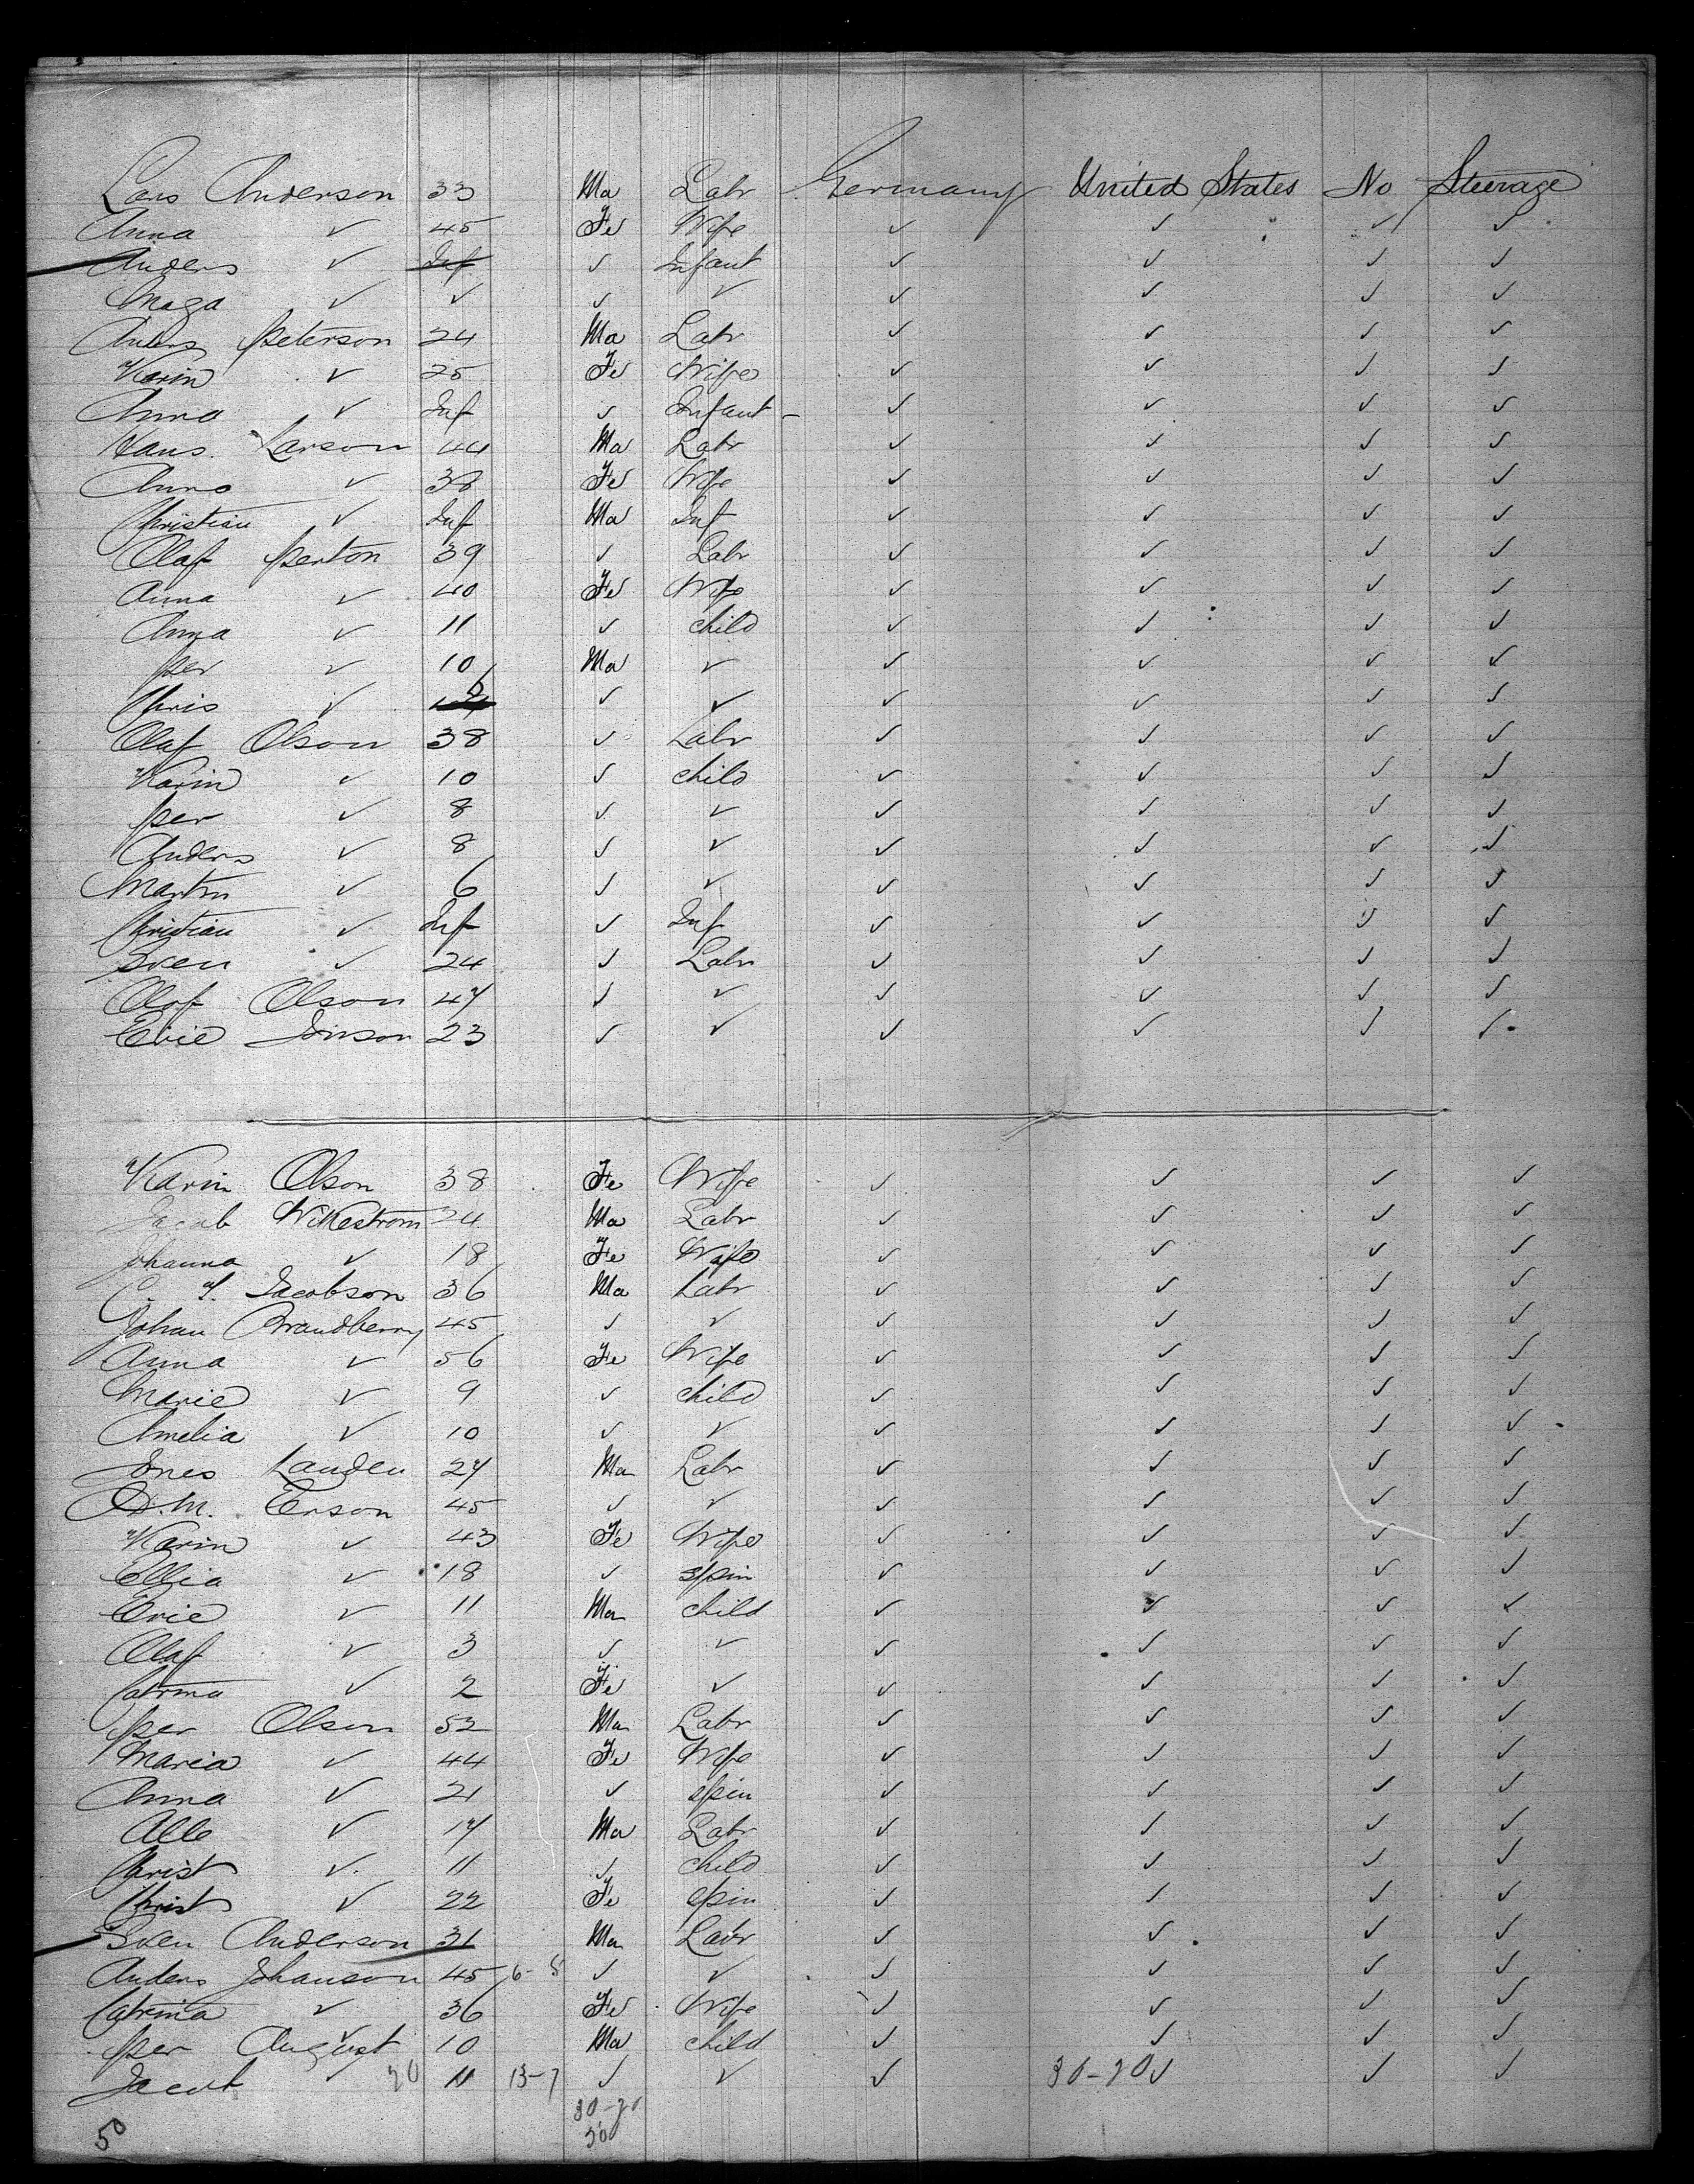 Lars Anderson 33 Ma Labr Germany United States No Steerage
Anna ✓ 45 Fe Wife ✓ ✓ ✓ ✓
Anders ✓ Inf ✓ Infant ✓ ✓ ✓ ✓
Maga ✓ ✓ ✓ ✓ ✓ ✓ ✓ ✓
Anders Peterson 24 Ma Labr ✓ ✓ ✓ ✓
Karin ✓ 25 Fe Wife ✓ ✓ ✓ ✓
Anna ✓ Inf ✓ Infant ✓ ✓ ✓ ✓
Hans Larson 44 Ma Labr ✓ ✓ ✓ ✓
Anna ✓ 38 Fe Wife ✓ ✓ ✓ ✓
Christian ✓ Inf Ma Inf ✓ ✓ ✓ ✓
Olaf Perton 39 ✓ Labr ✓ ✓ ✓ ✓
Anna ✓ 40 Fe Wife ✓ ✓ ✓ ✓
Anna ✓ 11 ✓ child ✓ ✓ ✓ ✓
Per ✓ 10 Ma ✓ ✓ ✓ ✓ ✓
Chris ✓ 6 ✓ ✓ ✓ ✓ ✓ ✓
Olaf Olson 38 ✓ Labr ✓ ✓ ✓ ✓
Karin ✓ 10 ✓ child ✓ ✓ ✓ ✓
Per ✓ 8 ✓ ✓ ✓ ✓ ✓ ✓
Anders ✓ 8 ✓ ✓ ✓ ✓ ✓ ✓
Martin ✓ 6 ✓ ✓ ✓ ✓ ✓ ✓
Christian ✓ Inf ✓ Inf ✓ ✓ ✓ ✓
Sven ✓ 24 ✓ Labr ✓ ✓ ✓ ✓
Olof Olson 47 ✓ ✓ ✓ ✓ ✓ ✓
Eric Jonson 23 ✓ ✓ ✓ ✓ ✓ ✓
Karin Olson 38 Fe Wife ✓ ✓ ✓ ✓
Jacob Wikestrom 24 Ma Labr ✓ ✓ ✓ ✓
Johanna ✓ 18 Fe Wife ✓ ✓ ✓ ✓
C. Jacobson 36 Ma Labr ✓ ✓ ✓ ✓
Johan Brandberry 45 ✓ ✓ ✓ ✓ ✓ ✓
Anna ✓ 56 Fe Wife ✓ ✓ ✓ ✓
Marie ✓ 9 ✓ child ✓ ✓ ✓ ✓
Amelia ✓ 10 ✓ ✓ ✓ ✓ ✓ ✓
Jones Landen 27 Ma Labr ✓ ✓ ✓ ✓
O.M. Erson 45 ✓ ✓ ✓ ✓ ✓ ✓
Karin ✓ 43 Fe Wife ✓ ✓ ✓ ✓
Ellia ✓ 18 ✓ spin ✓ ✓ ✓ ✓
Eric ✓ 11 Ma child ✓ ✓ ✓ ✓
Olaf ✓ 3 ✓ ✓ ✓ ✓ ✓ ✓
Catrina ✓ 2 Fe ✓ ✓ ✓ ✓ ✓
Per Olson 52 Ma Labr ✓ ✓ ✓ ✓
Maria ✓ 44 Fe Wife ✓ ✓ ✓ ✓
Anna ✓ 21 ✓ spin ✓ ✓ ✓ ✓
Alle ✓ 17 Ma Labr ✓ ✓ ✓ ✓
Christ ✓ 11 ✓ child ✓ ✓ ✓ ✓
Christ ✓ 22 Fe spin ✓ ✓ ✓ ✓
Sven Anderson 31 Ma Labr ✓ ✓ ✓ ✓
Anders Johanson 45 6-5 ✓ ✓ ✓ ✓ ✓ ✓
Catrina ✓ 36 Fe Wife ✓ ✓ ✓ ✓
Per August ✓ 10 Ma child ✓ ✓ ✓ ✓
Jacob ✓ 20 11 13-7 ✓ ✓ ✓ 30-20 ✓ ✓ ✓
30-20
50 50